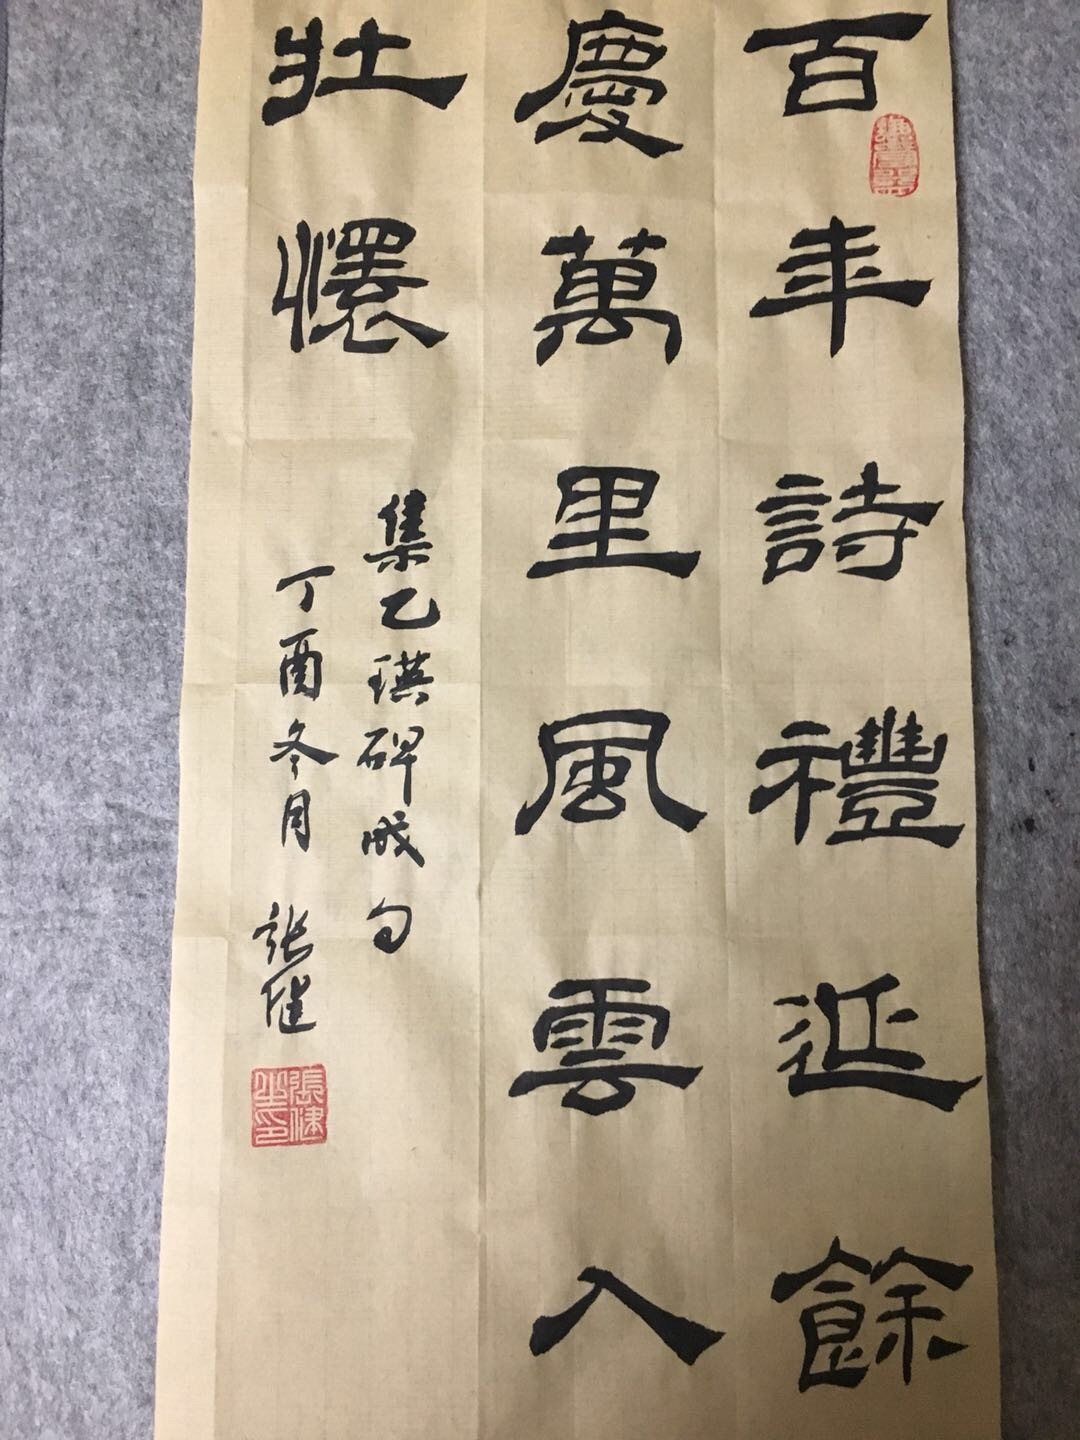 百年詩禮延餘
慶萬里風雲入
壯懷
集乙瑛碑成句
丁酉冬月 張健
張健之印